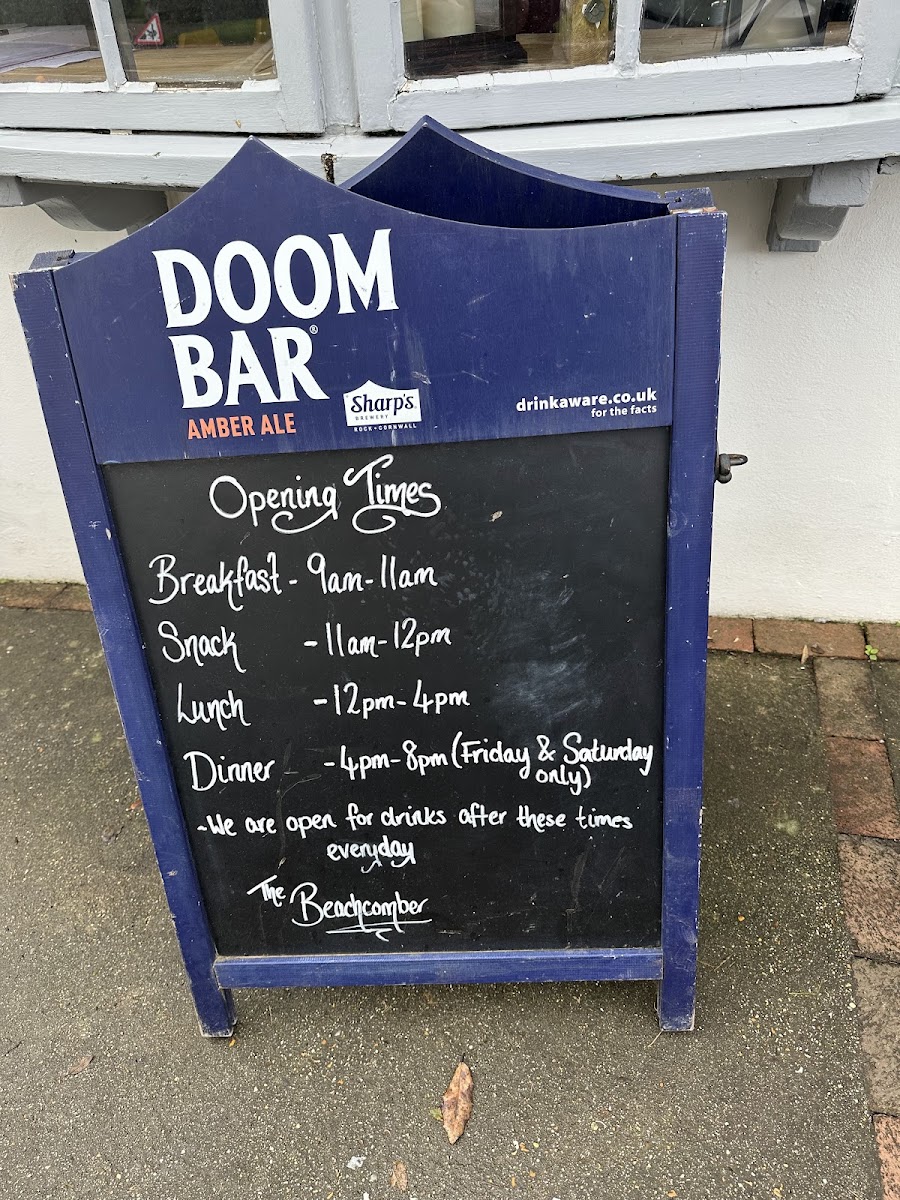 DOOM
BAR®
AMBER ALE
Sharp's
BREWERY
ROCK • CORNWALL
drinkaware.co.uk
for the facts
Opening Times
Breakfast - 9am-11am
Snack - 11am-12pm
Lunch - 12pm-4pm
Dinner - 4pm-8pm (Friday & Saturday
only)
~We are open for drinks after these times
everyday
The Beachcomber